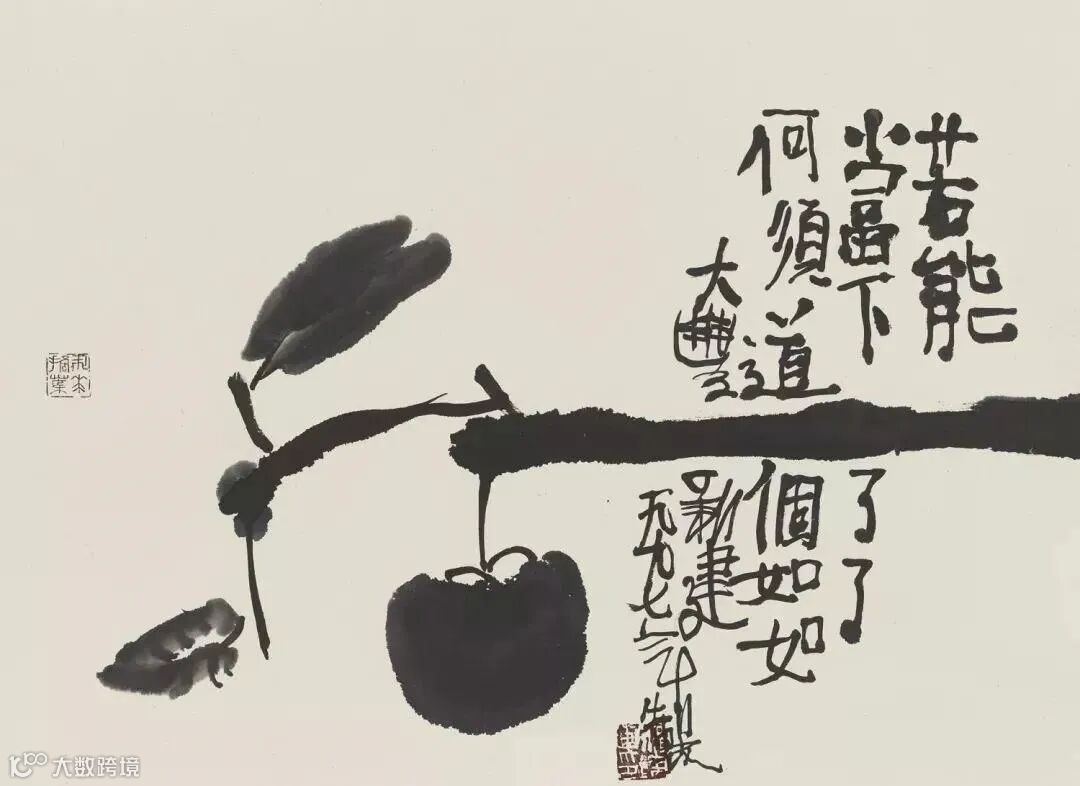 若能
當下了了
何須道個如如
大豐新建
九七年製
大数跨境